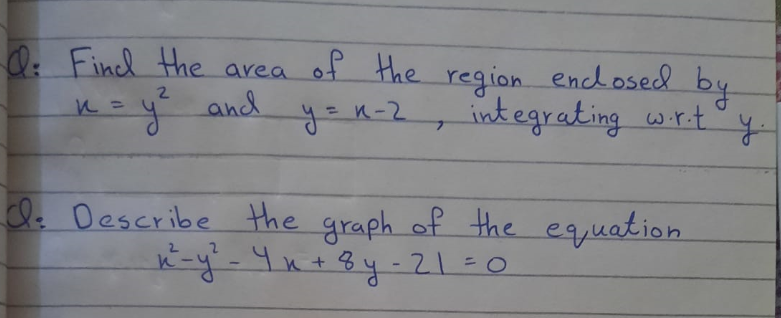 Q: Find the area of the region enclosed by
x = y² and y = x-2 , integrating w.r.t y.
Q: Describe the graph of the equation
x²-y²-4x+8y-21=0